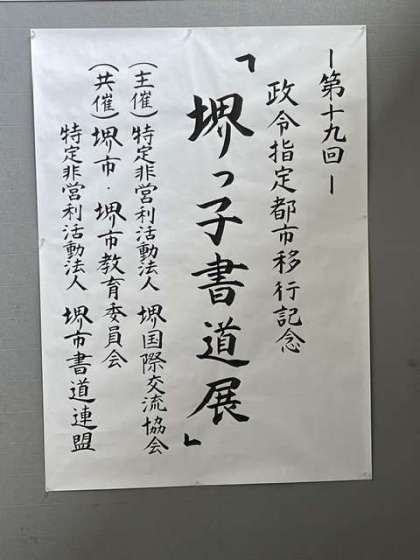 ー第十九回ー
政令指定都市移行記念
「堺っ子書道展」
(主催)特定非営利活動法人 堺国際交流協会
(共催)堺市・堺市教育委員会
特定非営利活動法人 堺市書道連盟